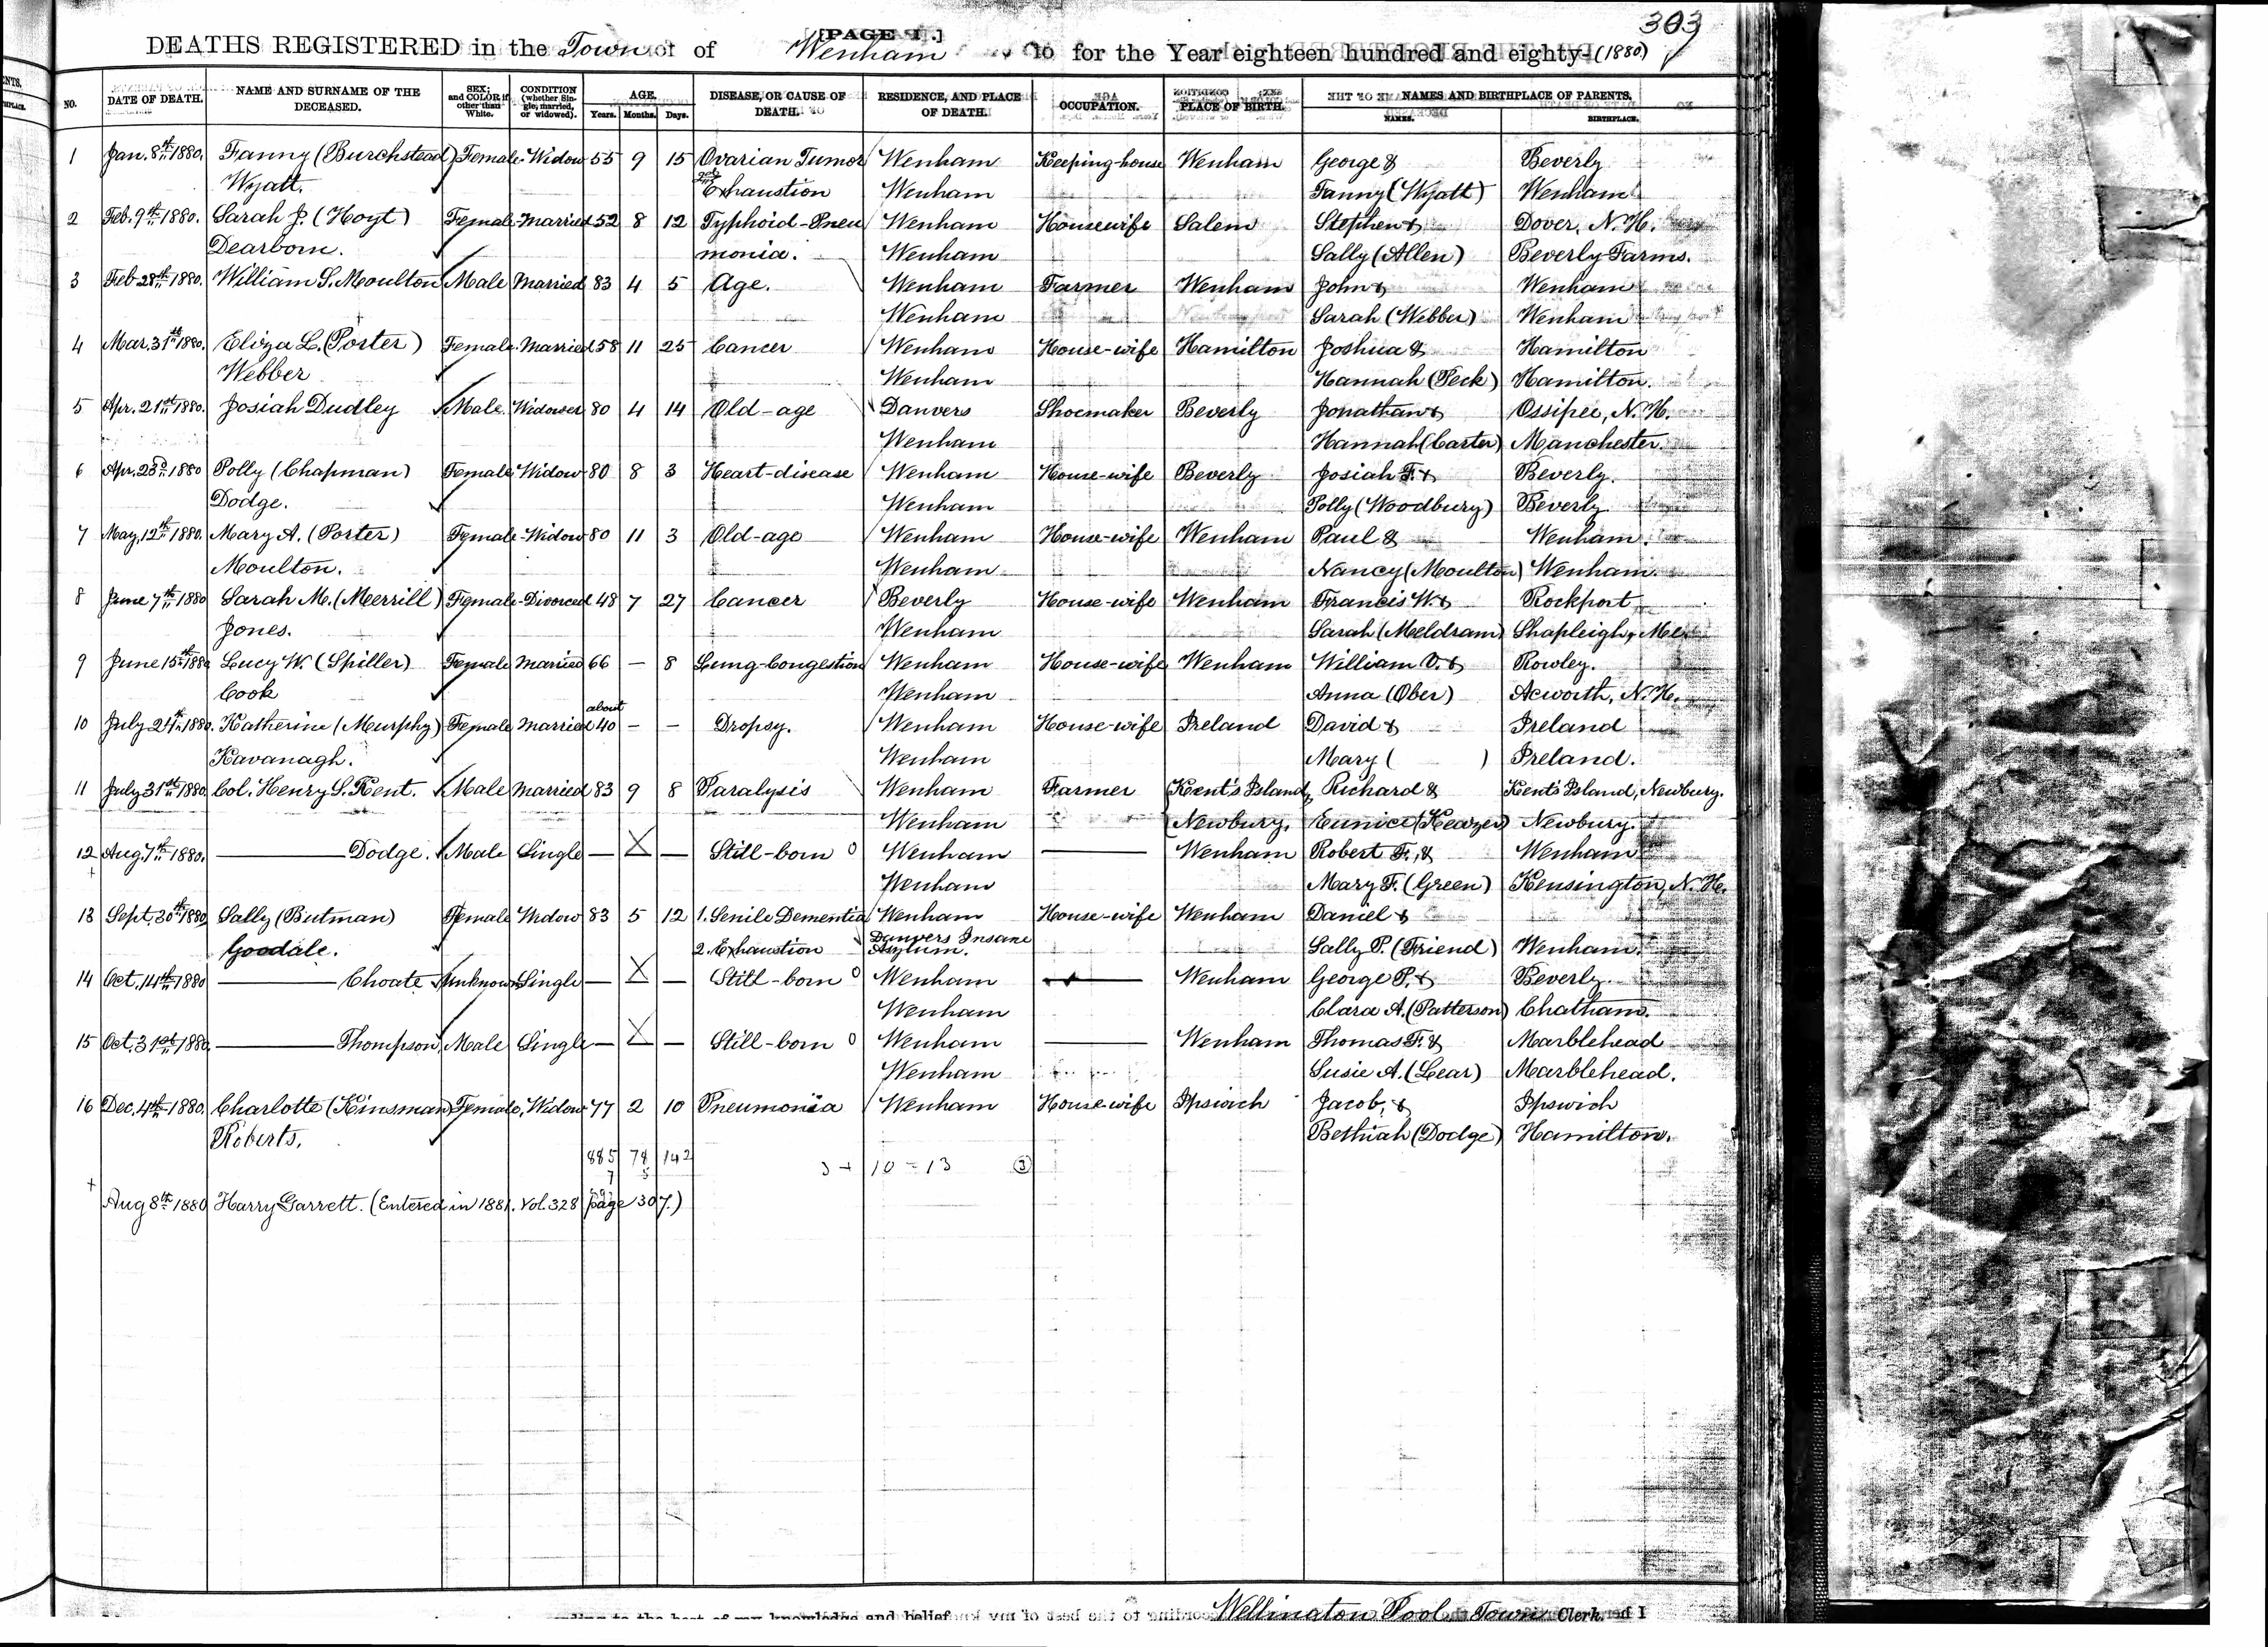 303
[PAGE 1.]
DEATHS REGISTERED in the Town of of Wenham for the Year eighteen hundred and eighty- (1880)
NO. DATE OF DEATH. NAME AND SURNAME OF THE DECEASED. SEX; and COLOR if other than White. CONDITION (whether Single, married, or widowed). AGE. Years. Months. Days. DISEASE, OR CAUSE OF DEATH. RESIDENCE, AND PLACE OF DEATH. OCCUPATION. PLACE OF BIRTH. NAMES AND BIRTHPLACE OF PARENTS. NAMES. BIRTHPLACE.
1 Jan. 8th 1880. Fanny (Burchstead) Female Widow 55 9 15 Ovarian Tumor Wenham Keeping-house Wenham George & Beverly
Wyatt. Exhaustion Wenham Fanny (Wyatt) Wenham
2 Feb. 9th 1880. Sarah J. (Hoyt) Female Married 52 8 12 Typhoid-Pneu Wenham Housewife Salem Stephen & Dover, N.H.
Dearborn. monia. Wenham Sally (Allen) Beverly Farms.
3 Feb 28th 1880. William S. Moulton Male Married 83 4 5 Age. Wenham Farmer Wenham John & Wenham
Wenham Sarah (Webber) Wenham
4 Mar. 31st 1880. Eliza L. (Porter) Female Married 58 11 25 Cancer Wenham House-wife Hamilton Joshua & Hamilton
Webber Wenham Hannah (Peck) Hamilton.
5 Apr. 21st 1880. Josiah Dudley Male Widower 80 4 14 Old-age Danvers Shoemaker Beverly Jonathan & Ossipee, N.H.
Wenham Hannah (Carter) Manchester.
6 Apr. 23d 1880 Polly (Chapman) Female Widow 80 8 3 Heart-disease Wenham House-wife Beverly Josiah F. & Beverly.
Dodge. Wenham Polly (Woodbury) Beverly.
7 May, 12th 1880. Mary A. (Porter) Female Widow 80 11 3 Old-age Wenham House-wife Wenham Paul & Wenham.
Moulton. Wenham Nancy (Moulton) Wenham.
8 June 7th 1880 Sarah M. (Merrill) Female Divorced 48 7 27 Cancer Beverly House-wife Wenham Francis W. & Rockport
Jones. Wenham Sarah (Meldram) Shapleigh, Me.
9 June 15th 1880 Lucy W. (Spiller) Female Married 66 — 8 Lung-Congestion Wenham House-wife Wenham William & Rowley.
Cook Wenham Anna (Ober) Acworth, N.H.
about
10 July 24th 1880. Katherine (Murphy) Female Married 40 — — Dropsy. Wenham House-wife Ireland David & Ireland
Kavanagh. Wenham Mary ( ) Ireland.
11 July 31st 1880. Col. Henry S. Kent. Male Married 83 9 8 Paralysis Wenham Farmer Kent's Island, Richard & Kent's Island, Newbury.
Wenham Newbury, Eunice (Keazer) Newbury.
12 Aug. 7th 1880. — Dodge. Male Single — X — Still-born 0 Wenham — Wenham Robert F., & Wenham
Wenham Mary F. (Green) Kensington, N.H.
13 Sept. 30th 1880 Sally (Butman) Female Widow 83 5 12 1. Senile Dementia Wenham House-wife Wenham Daniel &
Goodale. 2. Exhaustion Danvers Insane Asylum. Sally P. (Friend) Wenham.
14 Oct. 14th 1880 — Choate Unknown Single — X — Still-born 0 Wenham — Wenham George P. & Beverly.
Wenham Clara A. (Patterson) Chatham.
15 Oct. 31st 1880. — Thompson, Male Single — X — Still-born 0 Wenham — Wenham Thomas F. & Marblehead
Wenham Susie A. (Lear) Marblehead.
16 Dec. 4th 1880. Charlotte (Kinsman) Female, Widow 77 2 10 Pneumonia Wenham House-wife Ipswich Jacob, & Ipswich
Roberts. Bethiah (Dodge) Hamilton.
885 78 142
7 5
3 + 10 = 13 3
Aug 8th 1880 Harry Garrett. (Entered in 1881. Vol. 328 page 307.)
Wellington Pool, Town Clerk.